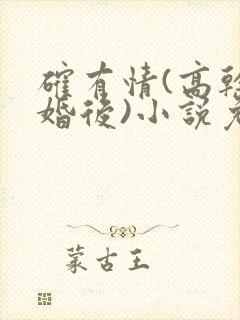 確有情(高幹
婚後)小說
蒙古王